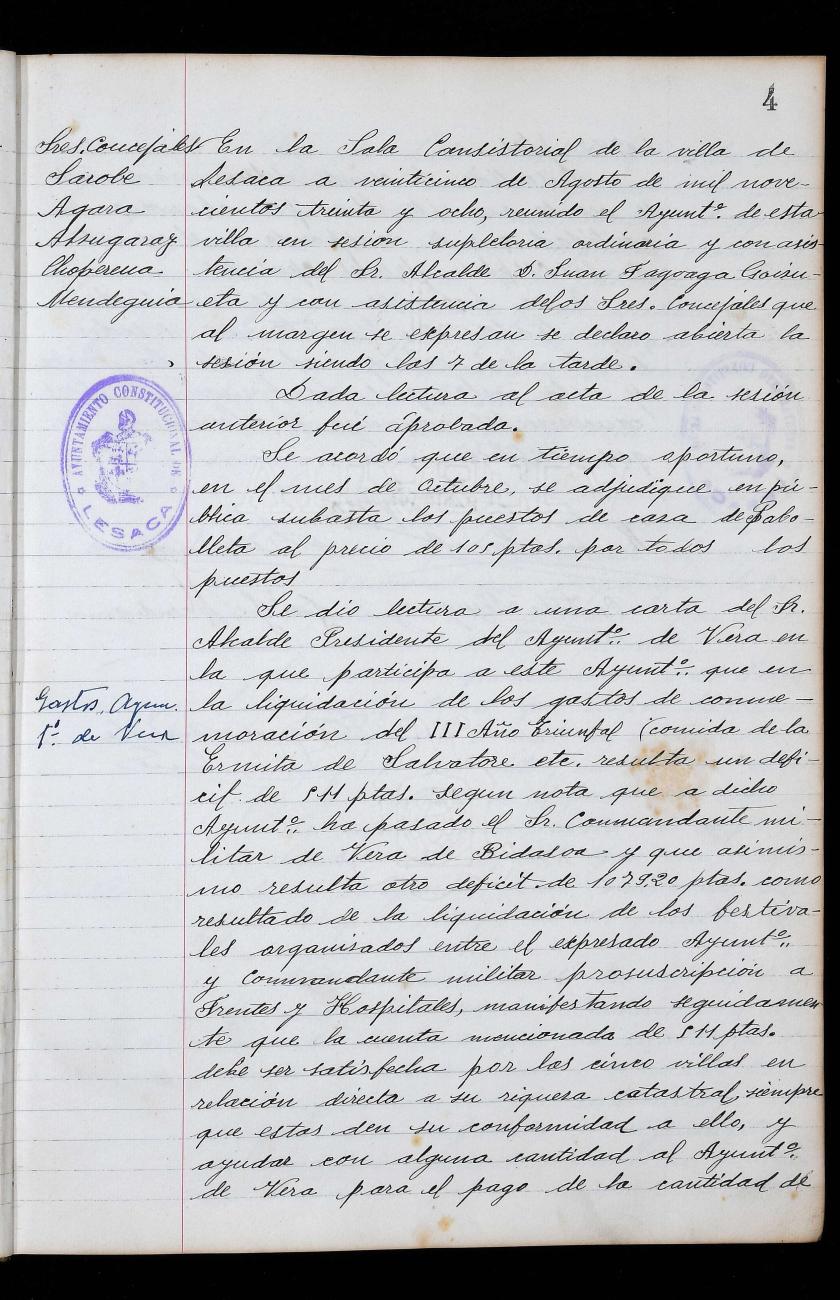 4
Sres. Concejales
Sarobe
Agara
Alzugaray
Choperena
Mendeguia
En la Sala Consistorial de la villa de
Lesaca a veinticinco de Agosto de mil nove-
cientos treinta y ocho, reunido el Ayuntº. de esta
villa en sesion supletoria ordinaria y con asis
tencia del Sr. Alcalde D. Juan Fagoaga Goizu-
eta y con asistencia delos Sres. Concejales que
al margen se expresan se declaro abierta la
sesión siendo las 7 de la tarde.
Dada lectura al acta de la sesión
anterior fué aprobada.
AYUNTAMIENTO CONSTITUCIONAL DE
LESACA
Se acordó que en tiempo oportuno,
en el mes de Octubre, se adjudique en pú-
blica subasta los puestos de caza de Palo-
lleta al precio de 105 ptas. por todos los
puestos
Se dio lectura a una carta del Sr.
Alcalde Presidente del Ayuntº. de Vera en
la que participa a este Ayuntº. que en
Gastos. Ayun.
tº. de Vera
la liquidación de los gastos de conme-
moración del III Año Triunfal (comida de la
Ermita de Salvatore etc. resulta un defi-
cit de 511 ptas. segun nota que a dicho
Ayuntº. ha pasado el Sr. Commandante mi-
litar de Vera de Bidasoa y que asimis-
mo resulta otro deficit de 1079,20 ptas. como
resultado de la liquidación de los festiva-
les organisados entre el expresado Ayuntº.
y Commandante militar prosuscripción a
Frentes y Hospitales, manifestando seguidamen
te que la cuenta mencionada de 511 ptas.
debe ser satisfecha por las cinco villas en
relación directa a su riquesa catastral, siempre
que estas den su conformidad a ello, y
ayudar con alguna cantidad al Ayuntº.
de Vera para el pago de la cantidad de